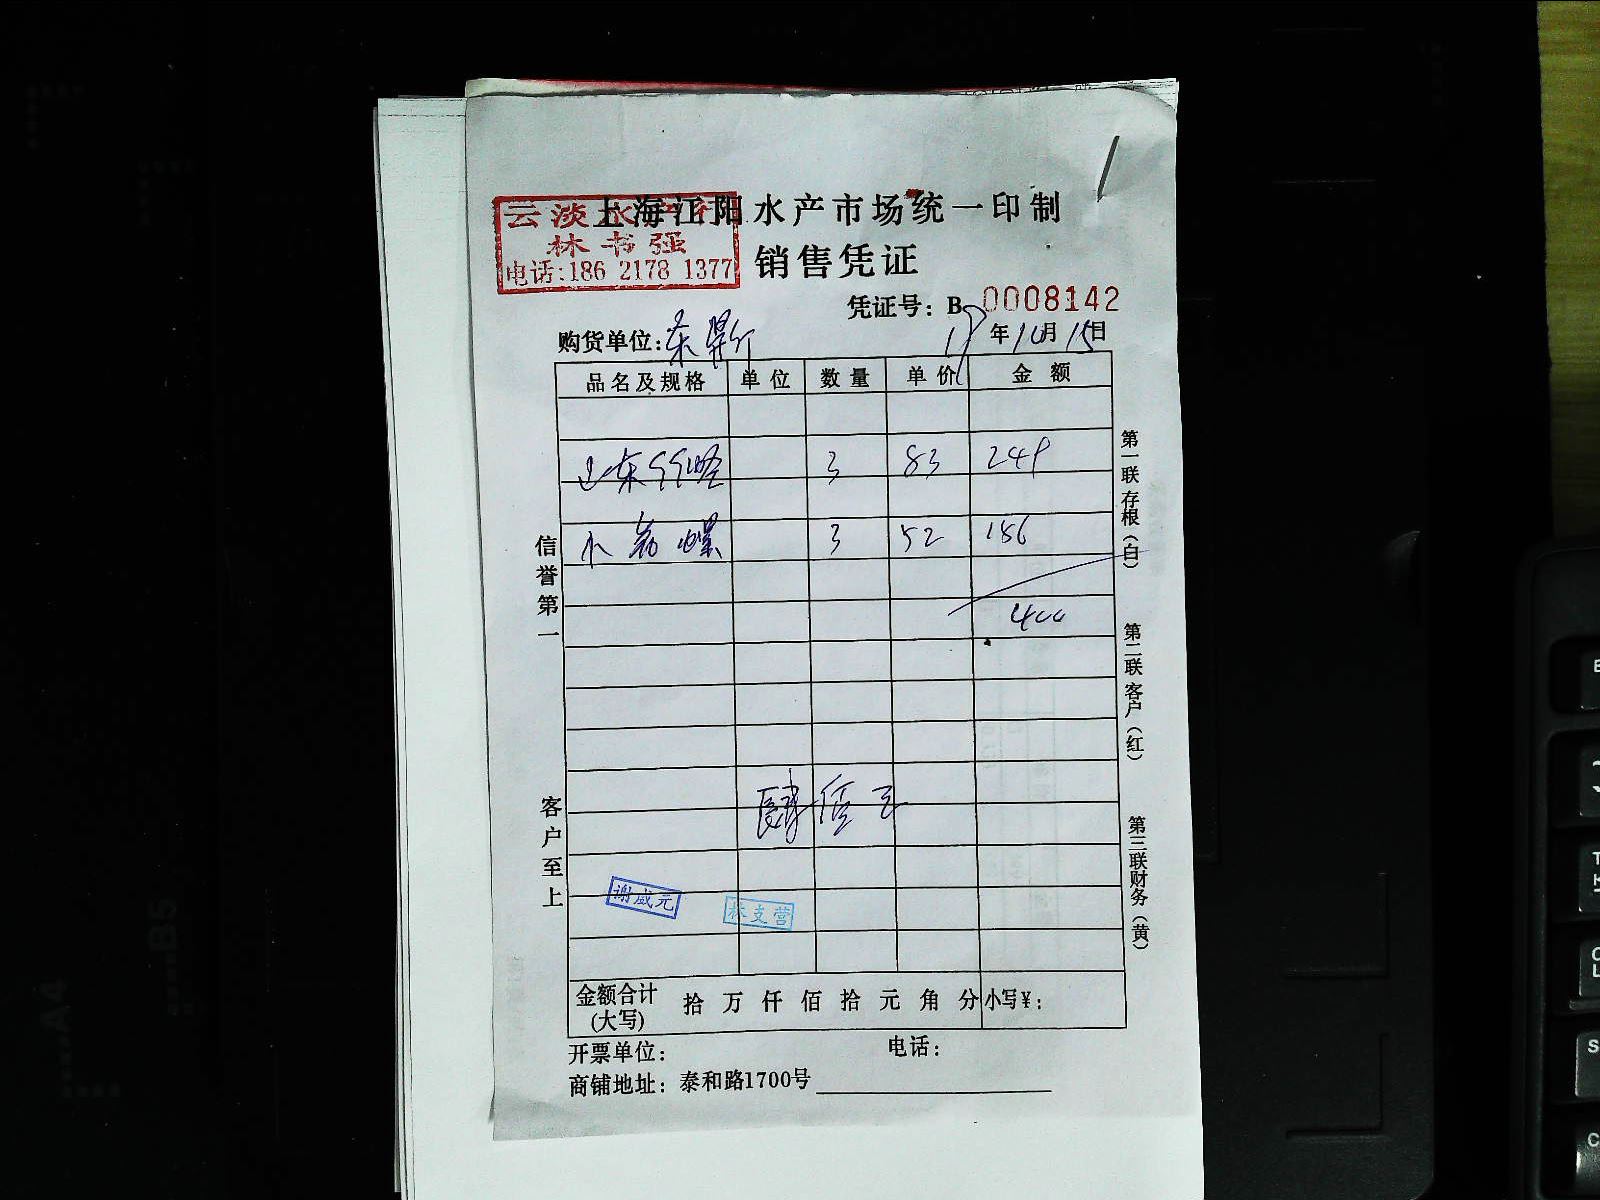 上海江阳水产市场统一印制
云淡水产行
林书强
电话:186 2178 1377
销售凭证
凭证号：B 0008142
购货单位:东
17年10月15日
品名及规格 单位 数量 单价 金额
山东 3 83 249
小 螺 3 52 156
400
肆佰元
谢盛元
林支营
金额合计(大写) 拾 万 仟 佰 拾 元 角 分 小写¥：
开票单位： 电话：
商铺地址：泰和路1700号
信誉第一
客户至上
第一联存根（白）
第二联客户（红）
第三联财务（黄）